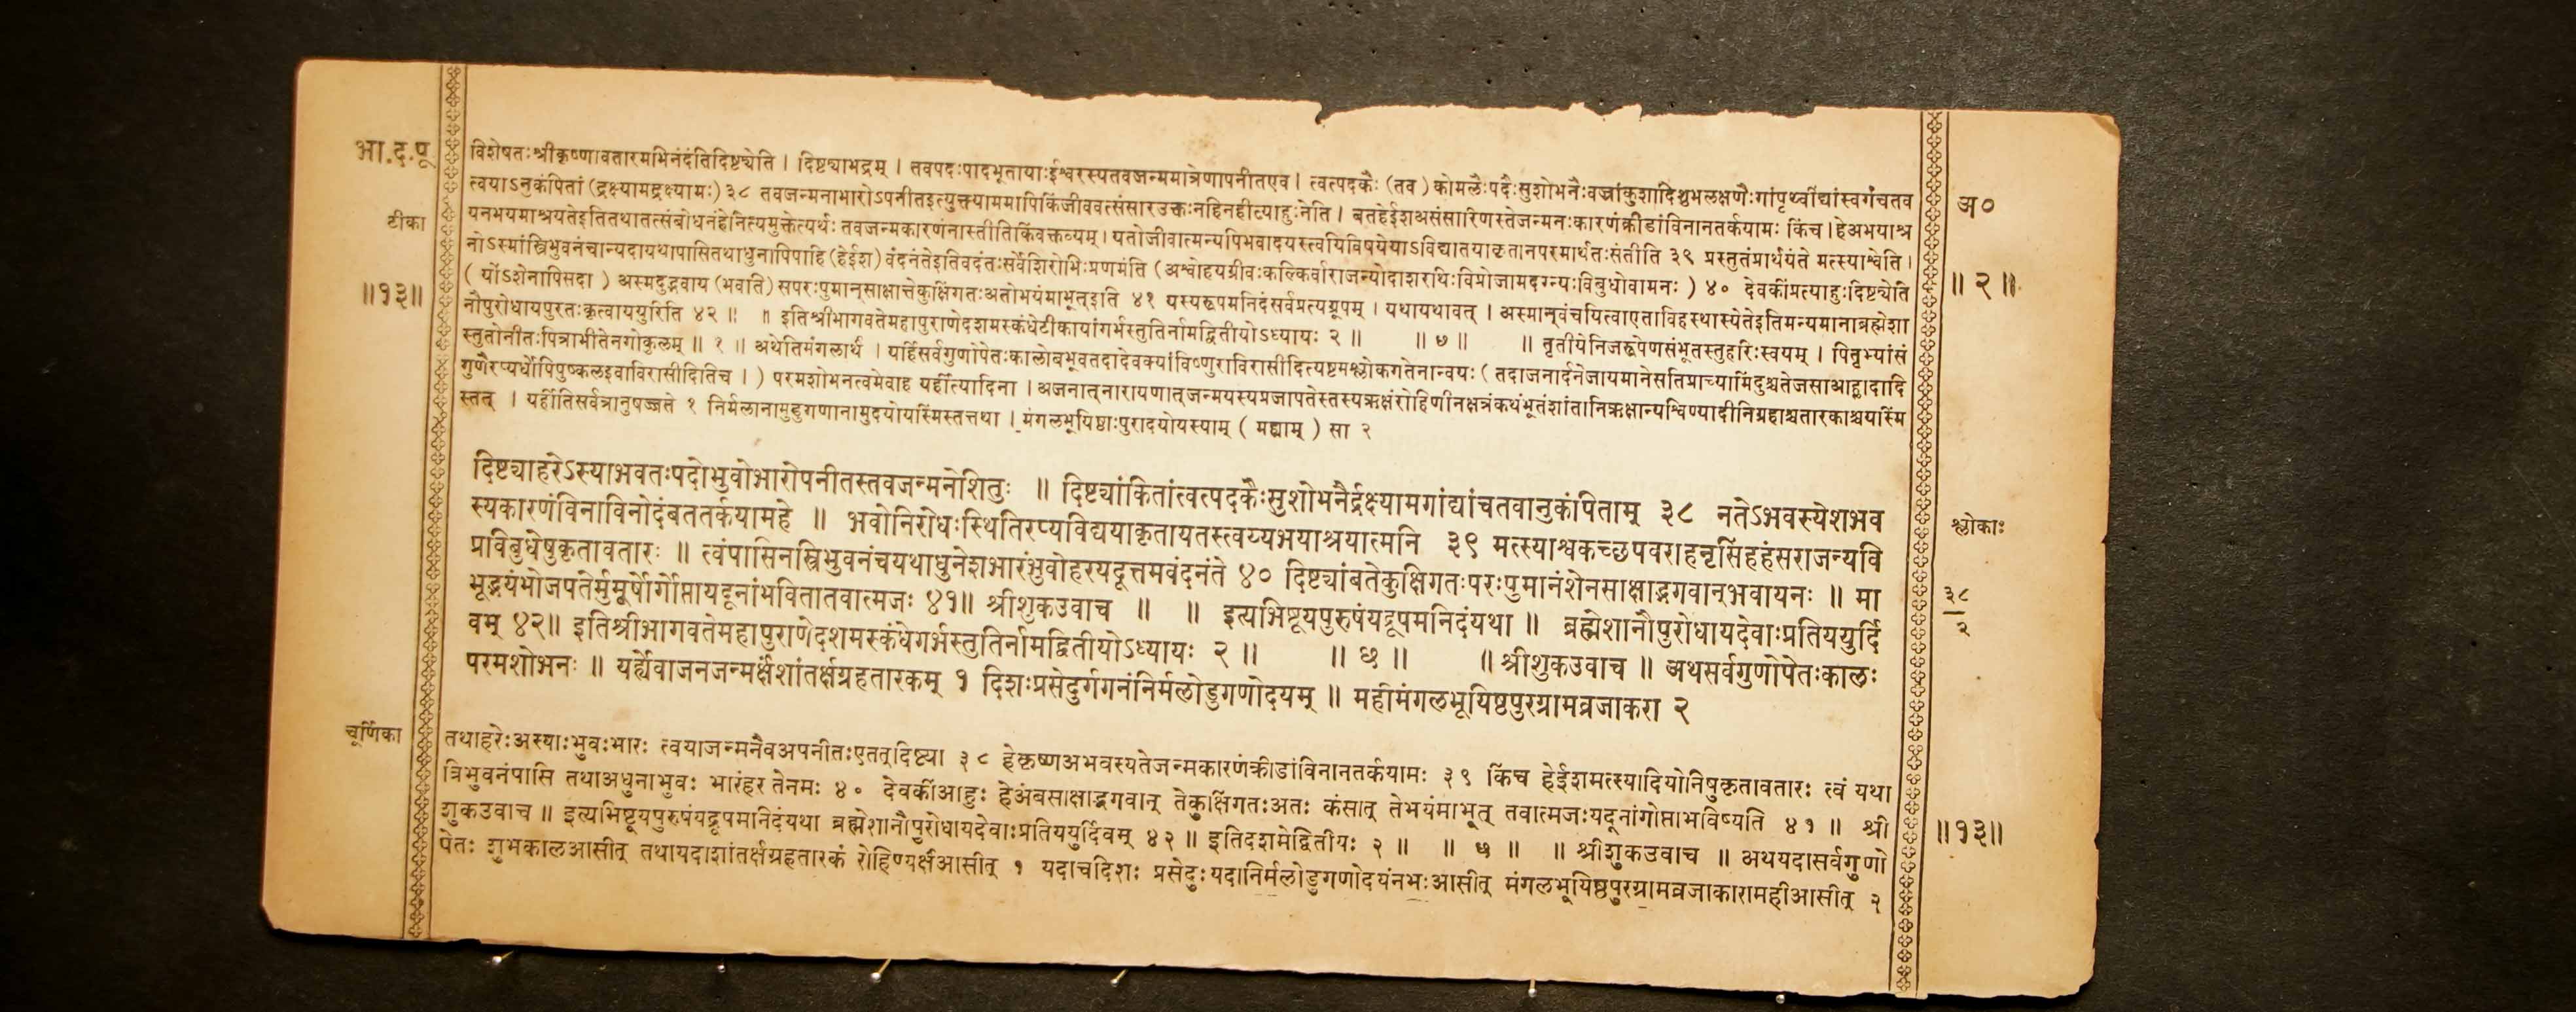 भा.द.पू
टीका
॥१३॥
विशेषतःश्रीकृष्णावतारमभिनंदंतिदिष्ट्येति । दिष्ट्याभद्रम् । तवपदःपादभूतायाःईश्वरस्यतवजन्ममात्रेणापनीतएव । त्वत्पदकैः (तव) कोमलैःपदैःसुशोभनैःवज्रांकुशादिशुभलक्षणैःगांपृथ्वींद्यांस्वर्गंचतव
त्वयाऽनुकंपितां (द्रक्ष्यामद्रक्ष्यामः) ३८ तवजन्मनाभारोऽपनीतइत्युक्त्याममापिकिंजीववत्संसारउक्तःनहिनहीत्याहुःनेति । बतहेईशअसंसारिणस्तेजन्मनःकारणंक्रीडांविनानतर्कयामः किंच । हेअभयाश्र
यनभयमाश्रयतेइतितथातत्संबोधनंहेनित्यमुक्तेत्यर्थः तवजन्मकारणंनास्तीतिकिंवक्तव्यम् । यतोजीवात्मन्यपिभवादयस्त्वयिविषयेयाऽविद्यातयाकृतानपरमार्थतःसंतीति ३९ प्रस्तुतंप्रार्थयंते मत्स्याश्वेति ।
नोऽस्मांस्त्रिभुवनंचान्यदायथापासितथाधुनापिपाहि (हेईश) वंदनंतेइतिवदंतःसर्वेशिरोभिःप्रणमंति (अश्वोहयग्रीवःकल्किर्वाराजन्योदाशरथिःविप्रोजामदग्न्यःविबुधोवामनः ) ४० देवकींप्रत्याहुःदिष्ट्येति
( योंऽशेनापिसदा ) अस्मदुद्भवाय (भवाति) सपरःपुमान्साक्षात्तेकुक्षिंगतःअतोभयंमाभूत्इति ४१ यस्यरूपमनिदंसर्वप्रत्यग्रूपम् । यथायथावत् । अस्मान्वंचयित्वाएताविहस्थास्येतेइतिमन्यमानाब्रह्मेशा
नौपुरोधायपुरतःकृत्वाययुरिति ४२ ॥ ॥ इतिश्रीभागवतेमहापुराणेदशमस्कंधेटीकायांगर्भस्तुतिर्नामद्वितीयोऽध्यायः २ ॥ ॥ ७ ॥ ॥ तृतीयेनिजरूपेणसंभूतस्तुहरिःस्वयम् । पितृभ्यांसं
स्तुतोनीतःपित्राभीतेनगोकुलम् ॥ १ ॥ अथेतिमंगलार्थं । यर्हिसर्वगुणोपेतःकालोबभूवतदादेवक्यांविष्णुराविरासीदित्यष्टमश्लोकगतेनान्वयः ( तदाजनार्दनेजायमानेसतिप्राच्यामिंदुश्चतेजसाआह्लादादि
गुणैरप्यर्धोपिपुष्कलइवाविरासीदितिच । ) परमशोभनत्वमेवाह यर्हीत्यादिना । अजनात्नारायणात्जन्मयस्यप्रजापतेस्तस्यऋक्षंरोहिणीनक्षत्रंकथंभूतंशांतानिऋक्षान्यश्विण्यादीनिग्रहाश्चतारकाश्चयस्मिं
स्तत् । यर्हीतिसर्वत्रानुषज्जते १ निर्मलानामुडुगणानामुदयोयस्मिंस्तत्तथा । मंगलभूयिष्ठाःपुरादयोयस्याम् ( मह्याम् ) सा २
अ०
॥ २ ॥
दिष्ट्याहरेऽस्याभवतःपदोभुवोभारोपनीतस्तवजन्मनेशितुः ॥ दिष्ट्यांकितांत्वत्पदकैःसुशोभनैर्द्रक्ष्यामगांद्यांचतवानुकंपिताम् ३८ नतेऽभवस्येशभव
स्यकारणंविनाविनोदंबततर्कयामहे ॥ भवोनिरोधःस्थितिरप्यविद्ययाकृतायतस्त्वय्यभयाश्रयात्मनि ३९ मत्स्याश्वकच्छपवराहनृसिंहहंसराजन्यवि
प्रविबुधेषुकृतावतारः ॥ त्वंपासिनस्त्रिभुवनंचयथाधुनेशभारंभुवोहरयदूत्तमवंदनंते ४० दिष्ट्यांबतेकुक्षिगतःपरःपुमानंशेनसाक्षाद्भगवान्भवायनः ॥ मा
भूद्भयंभोजपतेर्मुमूर्षोर्गोप्तायदूनांभवितातवात्मजः ४१॥ श्रीशुकउवाच ॥ ॥ इत्यभिष्टूयपुरुषंयद्रूपमनिदंयथा ॥ ब्रह्मेशानौपुरोधायदेवाःप्रतिययुर्दि
वम् ४२॥ इतिश्रीभागवतेमहापुराणेदशमस्कंधेगर्भस्तुतिर्नामद्वितीयोऽध्यायः २ ॥ ॥ ७ ॥ ॥ श्रीशुकउवाच ॥ अथसर्वगुणोपेतःकालः
परमशोभनः ॥ यर्ह्येवाजनजन्मर्क्षंशांतर्क्षग्रहतारकम् १ दिशःप्रसेदुर्गगनंनिर्मलोडुगणोदयम् ॥ महीमंगलभूयिष्ठपुरग्रामव्रजाकरा २
श्लोकाः
३८
२
चूर्णिका
तथाहरेःअस्याःभुवःभारः त्वयाजन्मनैवअपनीतःएतत्दिष्ट्या ३८ हेकृष्णअभवस्यतेजन्मकारणंक्रीडांविनानतर्कयामः ३९ किंच हेईशमत्स्यादियोनिषुकृतावतारः त्वं यथा
त्रिभुवनंपासि तथाअधुनाभुवः भारंहर तेनमः ४० देवकींआहुः हेअंबसाक्षाद्भगवान् तेकुक्षिंगतःअतः कंसात् तेभयंमाभूत् तवात्मजःयदूनांगोप्ताभविष्यति ४१ ॥ श्री
शुकउवाच ॥ इत्यभिष्टूयपुरुषंयद्रूपमनिदंयथा ब्रह्मेशानौपुरोधायदेवाःप्रतिययुर्दिवम् ४२ ॥ इतिदशमेद्वितीयः २ ॥ ॥ ७ ॥ ॥ श्रीशुकउवाच ॥ अथयदासर्वगुणो
पेतः शुभकालआसीत् तथायदाशांतर्क्षग्रहतारकं रोहिण्यर्क्षंआसीत् १ यदाचदिशः प्रसेदुःयदानिर्मलोडुगणोदयंनभःआसीत् मंगलभूयिष्ठपुरग्रामव्रजाकारामहीआसीत् २
॥१३॥